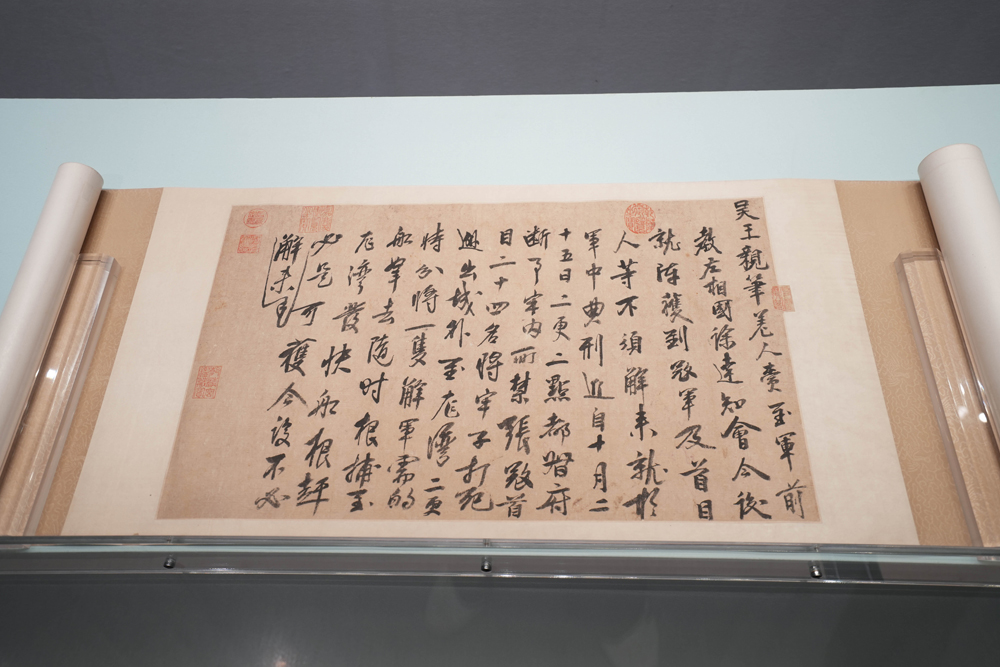 吴王親筆差人賫至軍前
教左相國徐達知會今後
就陣獲到寇軍及首目
人等不須解来就於
軍中典刑近自十月二
十五日二更二點都督府
断事牢内所禁張寇首
目二十四名將牢子打死
越出城外至龙灣二更
時分將一隻解軍需的
船掌去隨时根捕至
龙灣發快船根趕
必是可獲今後不必
解来